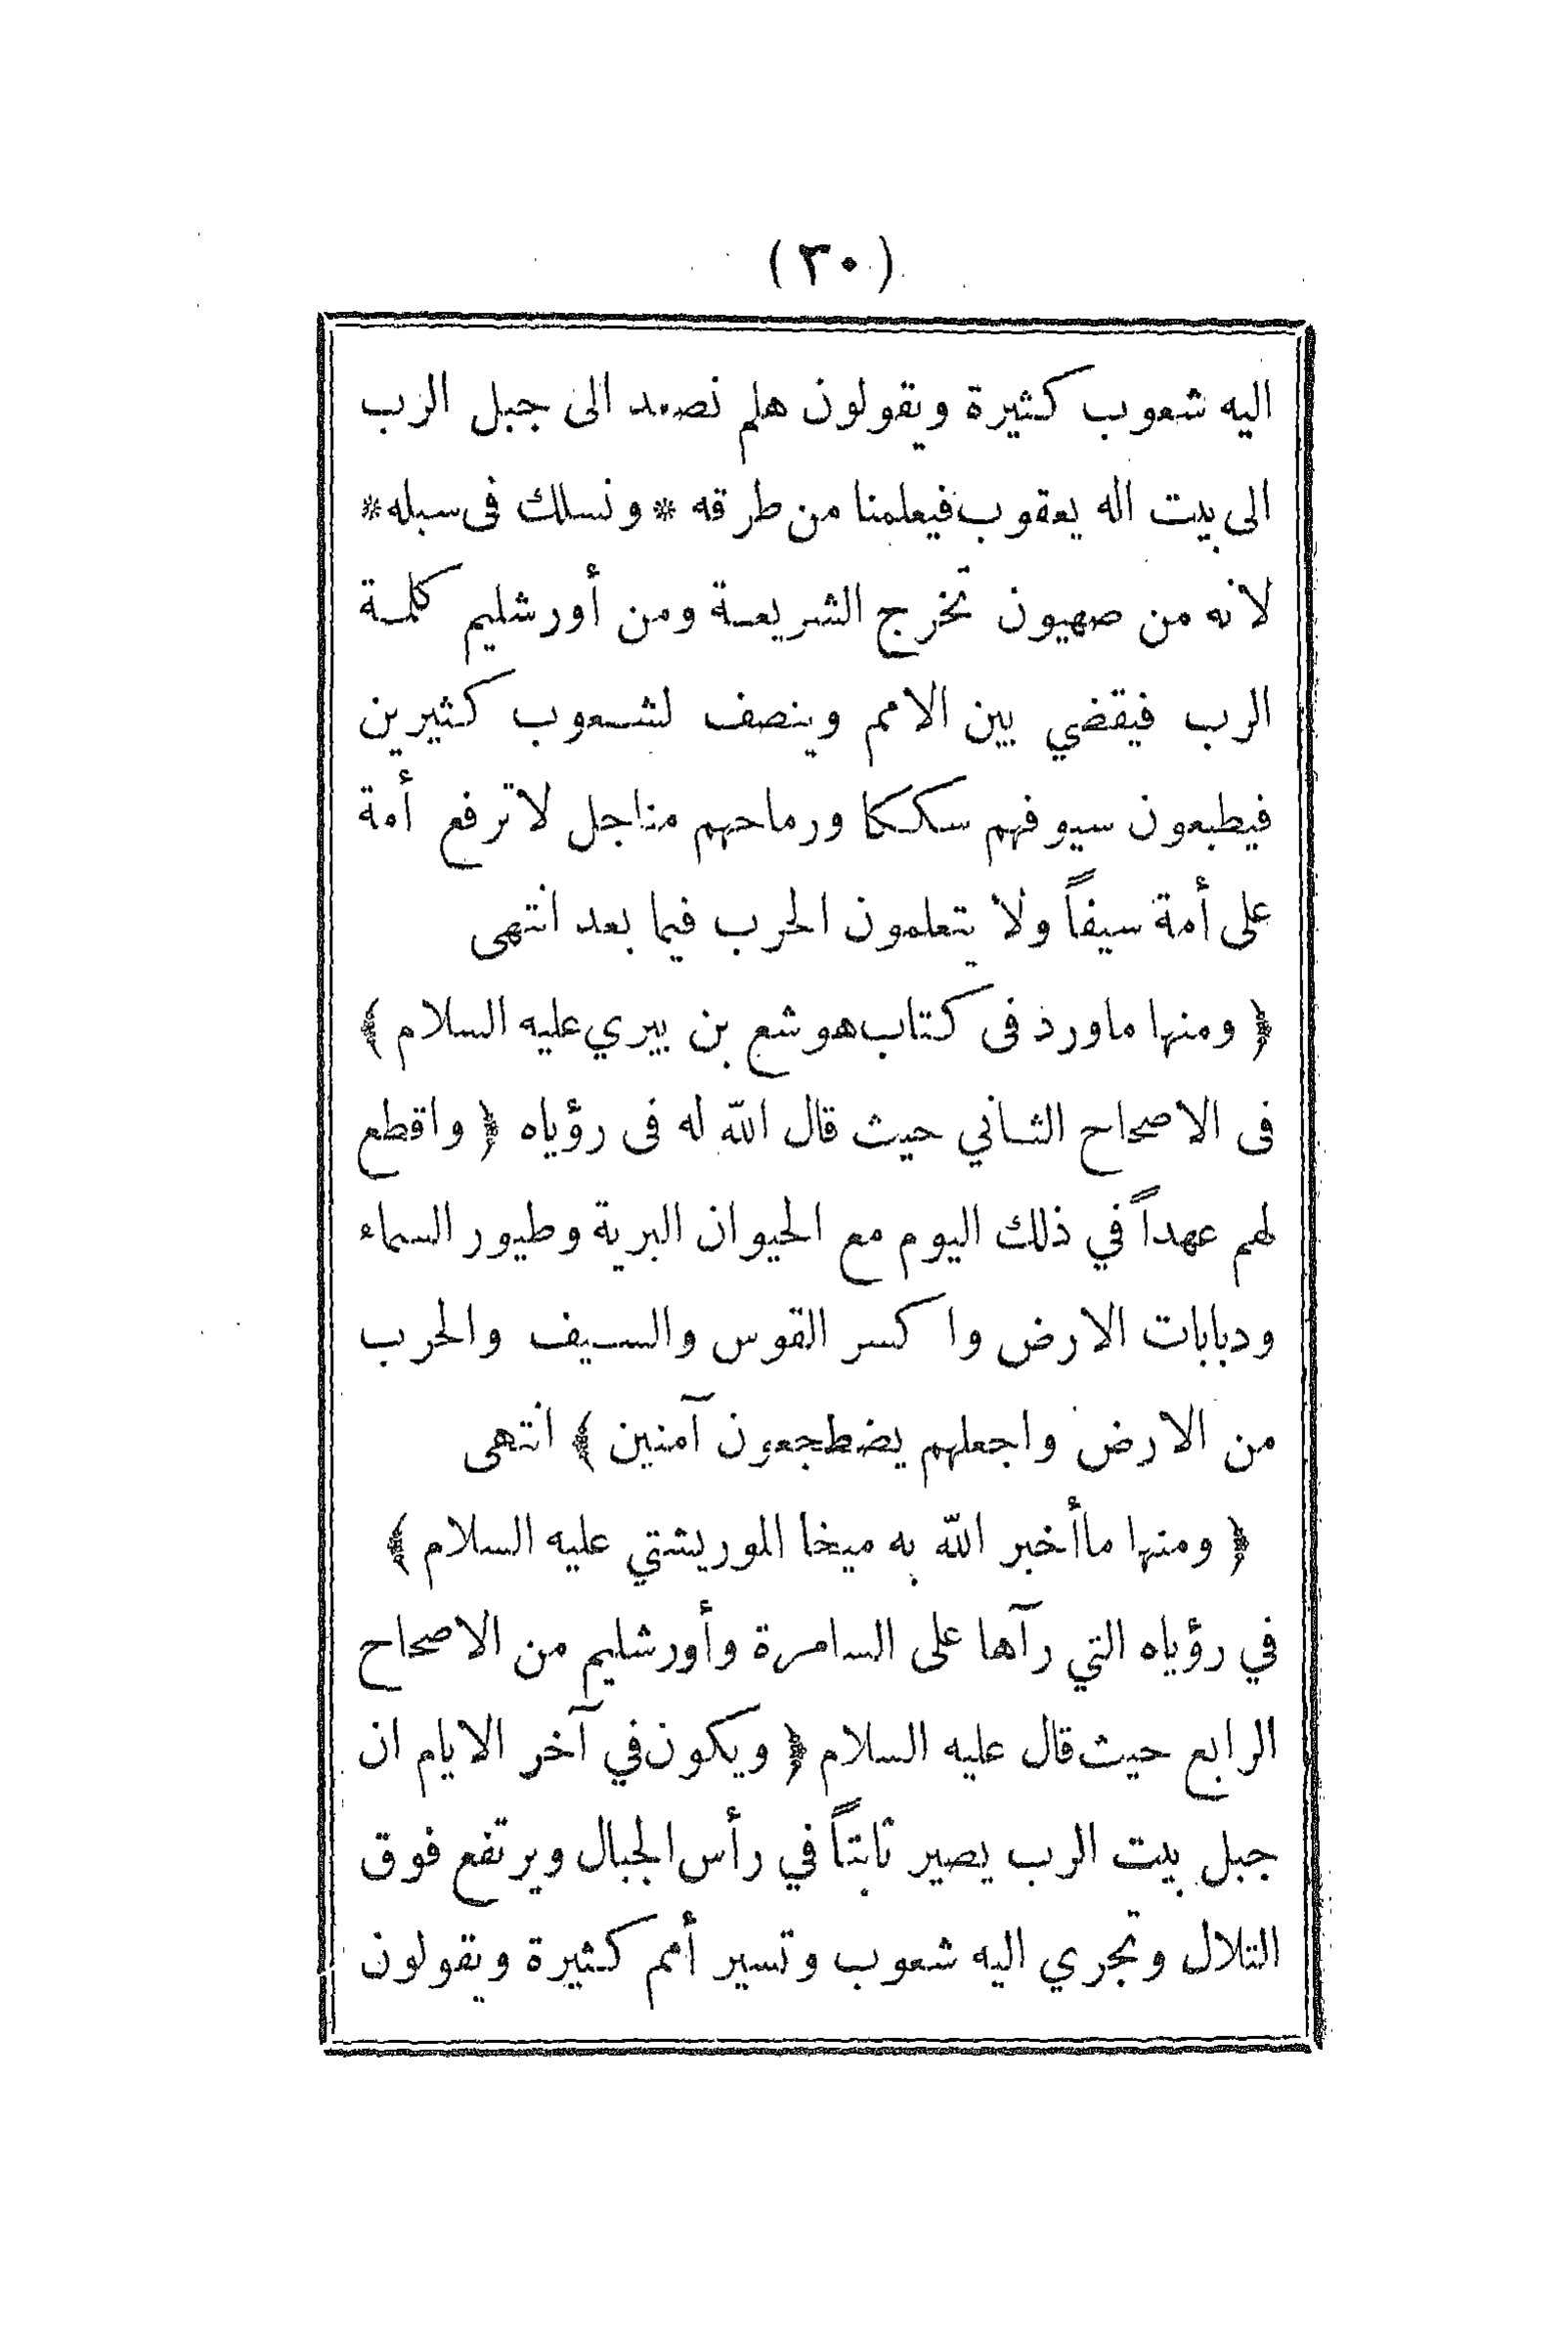 (٣٠)
اليه شعوب كثيرة ويقولون هلم نصعد الى جبل الرب
الى بيت اله يعقوب فيعلمنا من طرقه * ونسلك فى سبله *
لانه من صهيون تخرج الشريعة ومن أورشليم كلمة
الرب فيقضي بين الامم وينصف لشعوب كثيرين
فيطبعون سيوفهم سككا ورماحهم مناجل لا ترفع أمة
على أمة سيفاً ولا يتعلمون الحرب فيما بعد انتهى
﴿ ومنها ماورد فى كتاب هوشع بن بيري عليه السلام ﴾
فى الاصحاح الثاني حيث قال الله له فى رؤياه ﴿ واقطع
لهم عهداً في ذلك اليوم مع الحيوان البرية وطيور السماء
ودبابات الارض واكسر القوس والسيف والحرب
من الارض واجعلهم يضطجعون آمنين ﴾ انتهى
﴿ ومنها ماأخبر الله به ميخا الموريشتي عليه السلام ﴾
في رؤياه التي رآها على السامرة وأورشليم من الاصحاح
الرابع حيث قال عليه السلام ﴿ ويكون في آخر الايام ان
جبل بيت الرب يصير ثابتاً في رأس الجبال ويرتفع فوق
التلال وتجري اليه شعوب وتسير أمم كثيرة ويقولون